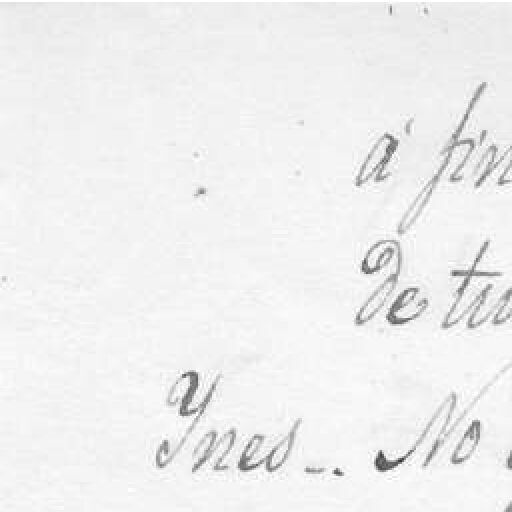 á fin
De tu
Ynes-. No